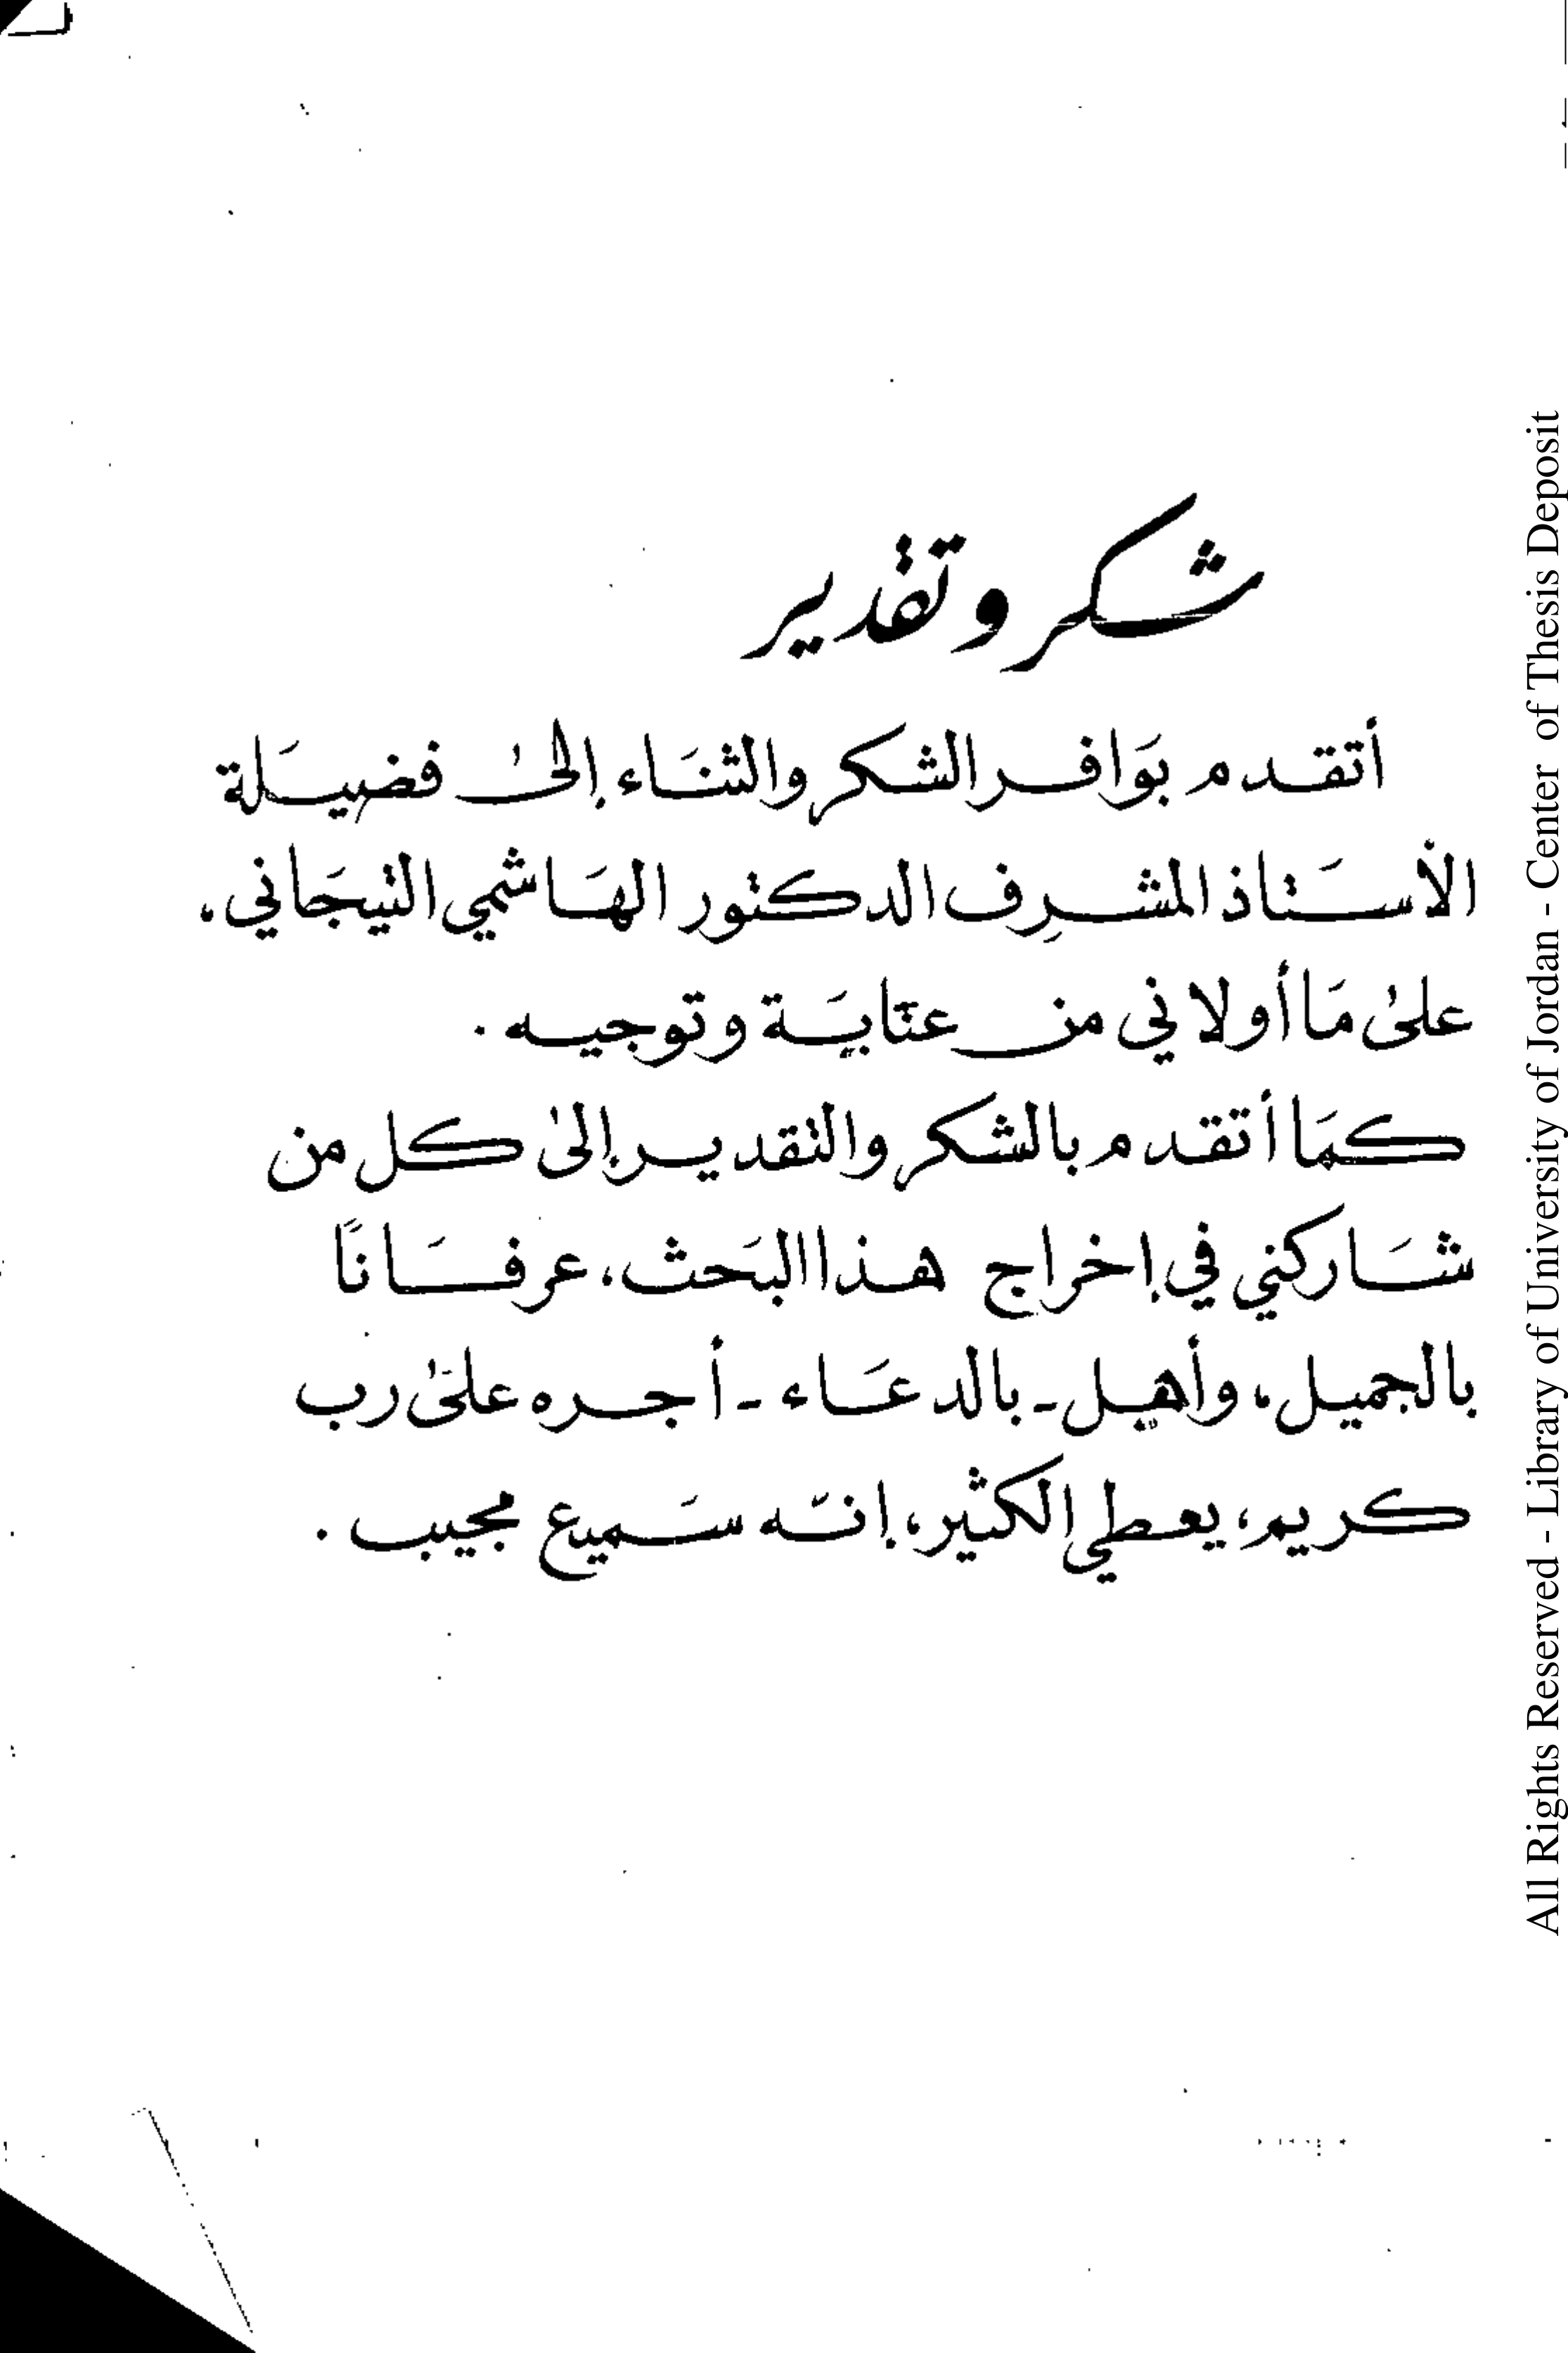 شكر وتقدير
أتقدم بوَافر الشكر والثنَاء إلىٰ فضيـَلة
الأستَاذ المشرِف الدكتور الهَاشمي التيجَاني،
علىٰ مَا أولاني من عنَايَة وتوجيه .
كمَا أتقدم بالشكر والتقدير إلىٰ كل من
شَاركني في إخراج هذا البَحث، عرفَانًا
بالجميل، وأهيل - بالدعَاء - أجره علىٰ رب
كريم، يعطي الكثير، إنّه سَميع مجيب .
All Rights Reserved - Library of University of Jordan - Center of Thesis Deposit